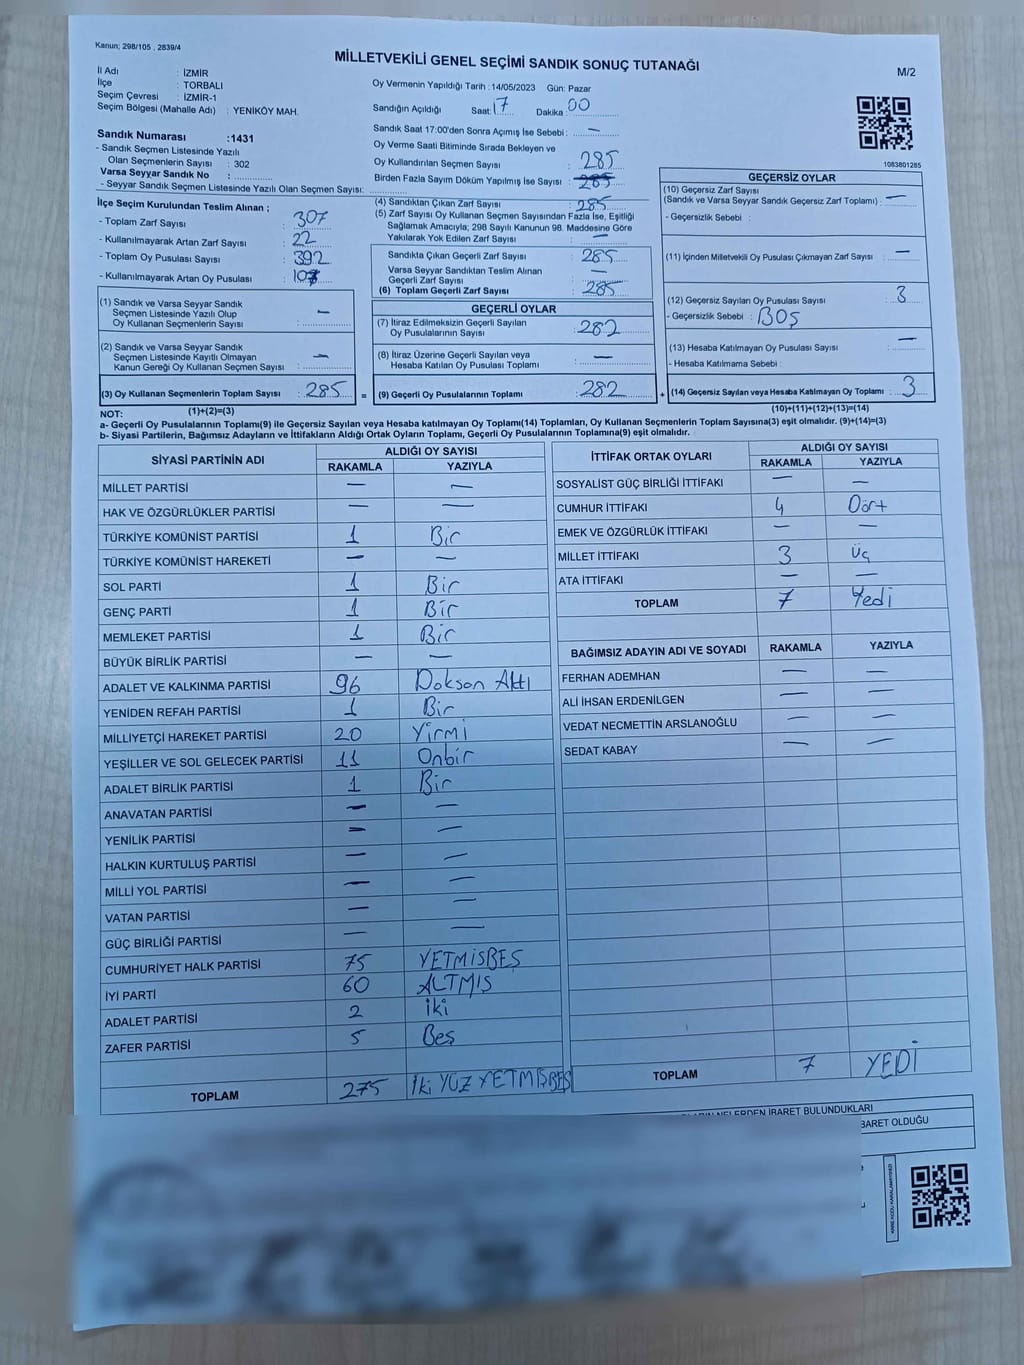 Kanun; 298/105 , 2839/4
MİLLETVEKİLİ GENEL SEÇİMİ SANDIK SONUÇ TUTANAĞI
M/2
İl Adı : İZMİR
İlçe : TORBALI
Seçim Çevresi : İZMİR-1
Seçim Bölgesi (Mahalle Adı) : YENİKÖY MAH.
Sandık Numarası :1431
- Sandık Seçmen Listesinde Yazılı
Olan Seçmenlerin Sayısı : 302
Varsa Seyyar Sandık No :
- Seyyar Sandık Seçmen Listesinde Yazılı Olan Seçmen Sayısı:
Oy Vermenin Yapıldığı Tarih :14/05/2023 Gün: Pazar
Sandığın Açıldığı Saat: 17 Dakika 00
Sandık Saat 17:00'den Sonra Açımış İse Sebebi : —
Oy Verme Saati Bitiminde Sırada Bekleyen ve
Oy Kullandırılan Seçmen Sayısı : 285
Birden Fazla Sayım Döküm Yapılmış İse Sayısı : 285
1083801285
İlçe Seçim Kurulundan Teslim Alınan ;
- Toplam Zarf Sayısı : 307
- Kullanılmayarak Artan Zarf Sayısı : 22
- Toplam Oy Pusulası Sayısı : 392
- Kullanılmayarak Artan Oy Pusulası :
(1) Sandık ve Varsa Seyyar Sandık
Seçmen Listesinde Yazılı Olup
Oy Kullanan Seçmenlerin Sayısı : —
(2) Sandık ve Varsa Seyyar Sandık
Seçmen Listesinde Kayıtlı Olmayan
Kanun Gereği Oy Kullanan Seçmen Sayısı : —
(3) Oy Kullanan Seçmenlerin Toplam Sayısı : 285
(1)+(2)=(3)
(4) Sandıktan Çıkan Zarf Sayısı : 285
(5) Zarf Sayısı Oy Kullanan Seçmen Sayısından Fazla İse, Eşitliği
Sağlamak Amacıyla; 298 Sayılı Kanunun 98. Maddesine Göre
Yakılarak Yok Edilen Zarf Sayısı : —
Sandıkta Çıkan Geçerli Zarf Sayısı : 285
Varsa Seyyar Sandıktan Teslim Alınan
Geçerli Zarf Sayısı : —
(6) Toplam Geçerli Zarf Sayısı : 285
GEÇERLİ OYLAR
(7) İtiraz Edilmeksizin Geçerli Sayılan
Oy Pusulalarının Sayısı : 282
(8) İtiraz Üzerine Geçerli Sayılan veya
Hesaba Katılan Oy Pusulası Toplamı : —
= (9) Geçerli Oy Pusulalarının Toplamı : 282
GEÇERSİZ OYLAR
(10) Geçersiz Zarf Sayısı
(Sandık ve Varsa Seyyar Sandık Geçersiz Zarf Toplamı) : —
- Geçersizlik Sebebi :
(11) İçinden Milletvekili Oy Pusulası Çıkmayan Zarf Sayısı : —
(12) Geçersiz Sayılan Oy Pusulası Sayısı : 3
- Geçersizlik Sebebi : BOŞ
(13) Hesaba Katılmayan Oy Pusulası Sayısı : —
- Hesaba Katılmama Sebebi :
+ (14) Geçersiz Sayılan veya Hesaba Katılmayan Oy Toplamı : 3
(10)+(11)+(12)+(13)=(14)
NOT:
a- Geçerli Oy Pusulalarının Toplamı(9) ile Geçersiz Sayılan veya Hesaba katılmayan Oy Toplamı(14) Toplamları, Oy Kullanan Seçmenlerin Toplam Sayısına(3) eşit olmalıdır. (9)+(14)=(3)
b- Siyasi Partilerin, Bağımsız Adayların ve İttifakların Aldığı Ortak Oyların Toplamı, Geçerli Oy Pusulalarının Toplamına(9) eşit olmalıdır.
SİYASİ PARTİNİN ADI ALDIĞI OY SAYISI
RAKAMLA YAZIYLA
MİLLET PARTİSİ — —
HAK VE ÖZGÜRLÜKLER PARTİSİ — —
TÜRKİYE KOMÜNİST PARTİSİ 1 Bir
TÜRKİYE KOMÜNİST HAREKETİ — —
SOL PARTİ 1 Bir
GENÇ PARTİ 1 Bir
MEMLEKET PARTİSİ 1 Bir
BÜYÜK BİRLİK PARTİSİ — —
ADALET VE KALKINMA PARTİSİ 96 Doksan Altı
YENİDEN REFAH PARTİSİ 1 Bir
MİLLİYETÇİ HAREKET PARTİSİ 20 Yirmi
YEŞİLLER VE SOL GELECEK PARTİSİ 11 Onbir
ADALET BİRLİK PARTİSİ 1 Bir
ANAVATAN PARTİSİ — —
YENİLİK PARTİSİ — —
HALKIN KURTULUŞ PARTİSİ — —
MİLLİ YOL PARTİSİ — —
VATAN PARTİSİ — —
GÜÇ BİRLİĞİ PARTİSİ — —
CUMHURİYET HALK PARTİSİ 75 YETMİSBEŞ
İYİ PARTİ 60 ALTMIS
ADALET PARTİSİ 2 İki
ZAFER PARTİSİ 5 Beş
TOPLAM 275 İki YÜZ YETMİŞBEŞ
İTTİFAK ORTAK OYLARI ALDIĞI OY SAYISI
RAKAMLA YAZIYLA
SOSYALİST GÜÇ BİRLİĞİ İTTİFAKI — —
CUMHUR İTTİFAKI 4 Dört
EMEK VE ÖZGÜRLÜK İTTİFAKI — —
MİLLET İTTİFAKI 3 Üç
ATA İTTİFAKI — —
TOPLAM 7 Yedi
BAĞIMSIZ ADAYIN ADI VE SOYADI RAKAMLA YAZIYLA
FERHAN ADEMHAN — —
ALİ İHSAN ERDENİLGEN — —
VEDAT NECMETTİN ARSLANOĞLU — —
SEDAT KABAY — —
TOPLAM 7 YEDİ
NELERDEN İBARET BULUNDUKLARI
BARET OLDUĞU